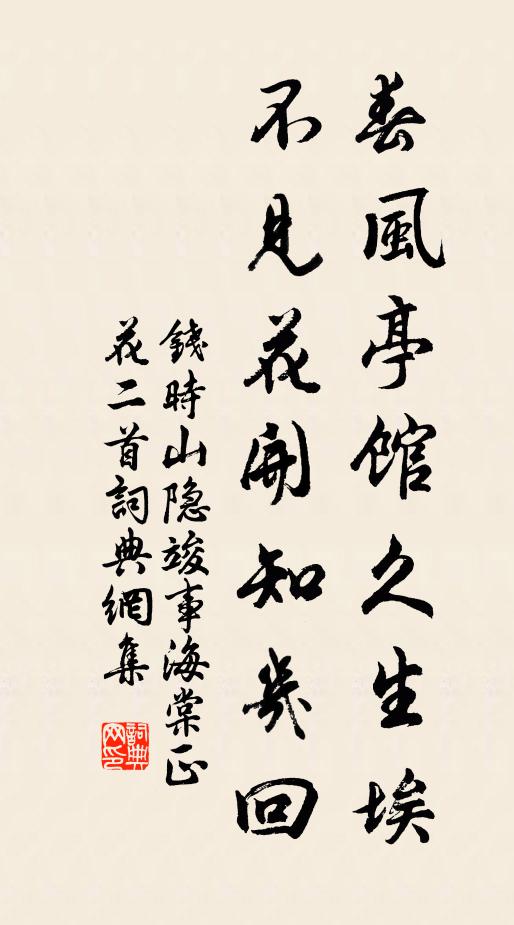 春風亭館久生埃
不見花開知幾回
錢時山隐竣事海棠正
花二首詞典網集
詞典網印